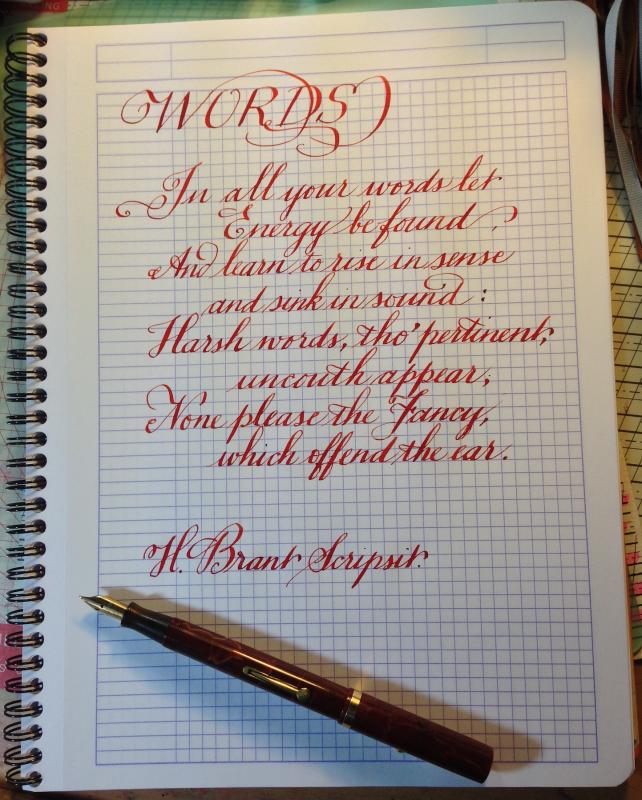 WORDS
In all your words let
Energy be found,
And learn to rise in sense
and sink in sound:
Harsh words, tho' pertinent,
uncouth appear;
None please the Fancy,
which offend the ear.
H. Brant Scripsit.